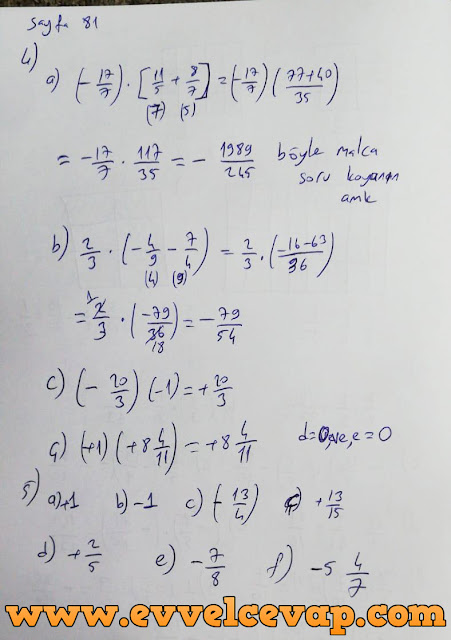 Sayfa 81
4)
a) (-17/7) . [11/5 + 8/7] = (-17/7) (77+40/35)
(7) (5)
= -17/7 . 117/35 = - 1989/245 böyle malca
soru koyanın
amk
b) 2/3 . (-4/9 - 7/4) = 2/3 . (-16-63/36)
(4) (9)
= 2/3 . (-79/36) = - 79/54
1 18
c) (- 20/3) (-1) = + 20/3
ç) (+1) (+8 4/11) = +8 4/11 d=0, ve, e = 0
5)
a) +1 b) -1 c) (- 13/4) ç) + 13/15
d) + 2/5 e) - 7/8 f) -5 4/7
www.evvelcevap.com